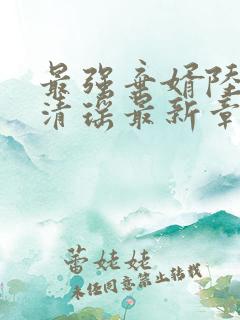 最强弃婿陆
清瑶最新章
蕾姥姥
未经同意禁止转载